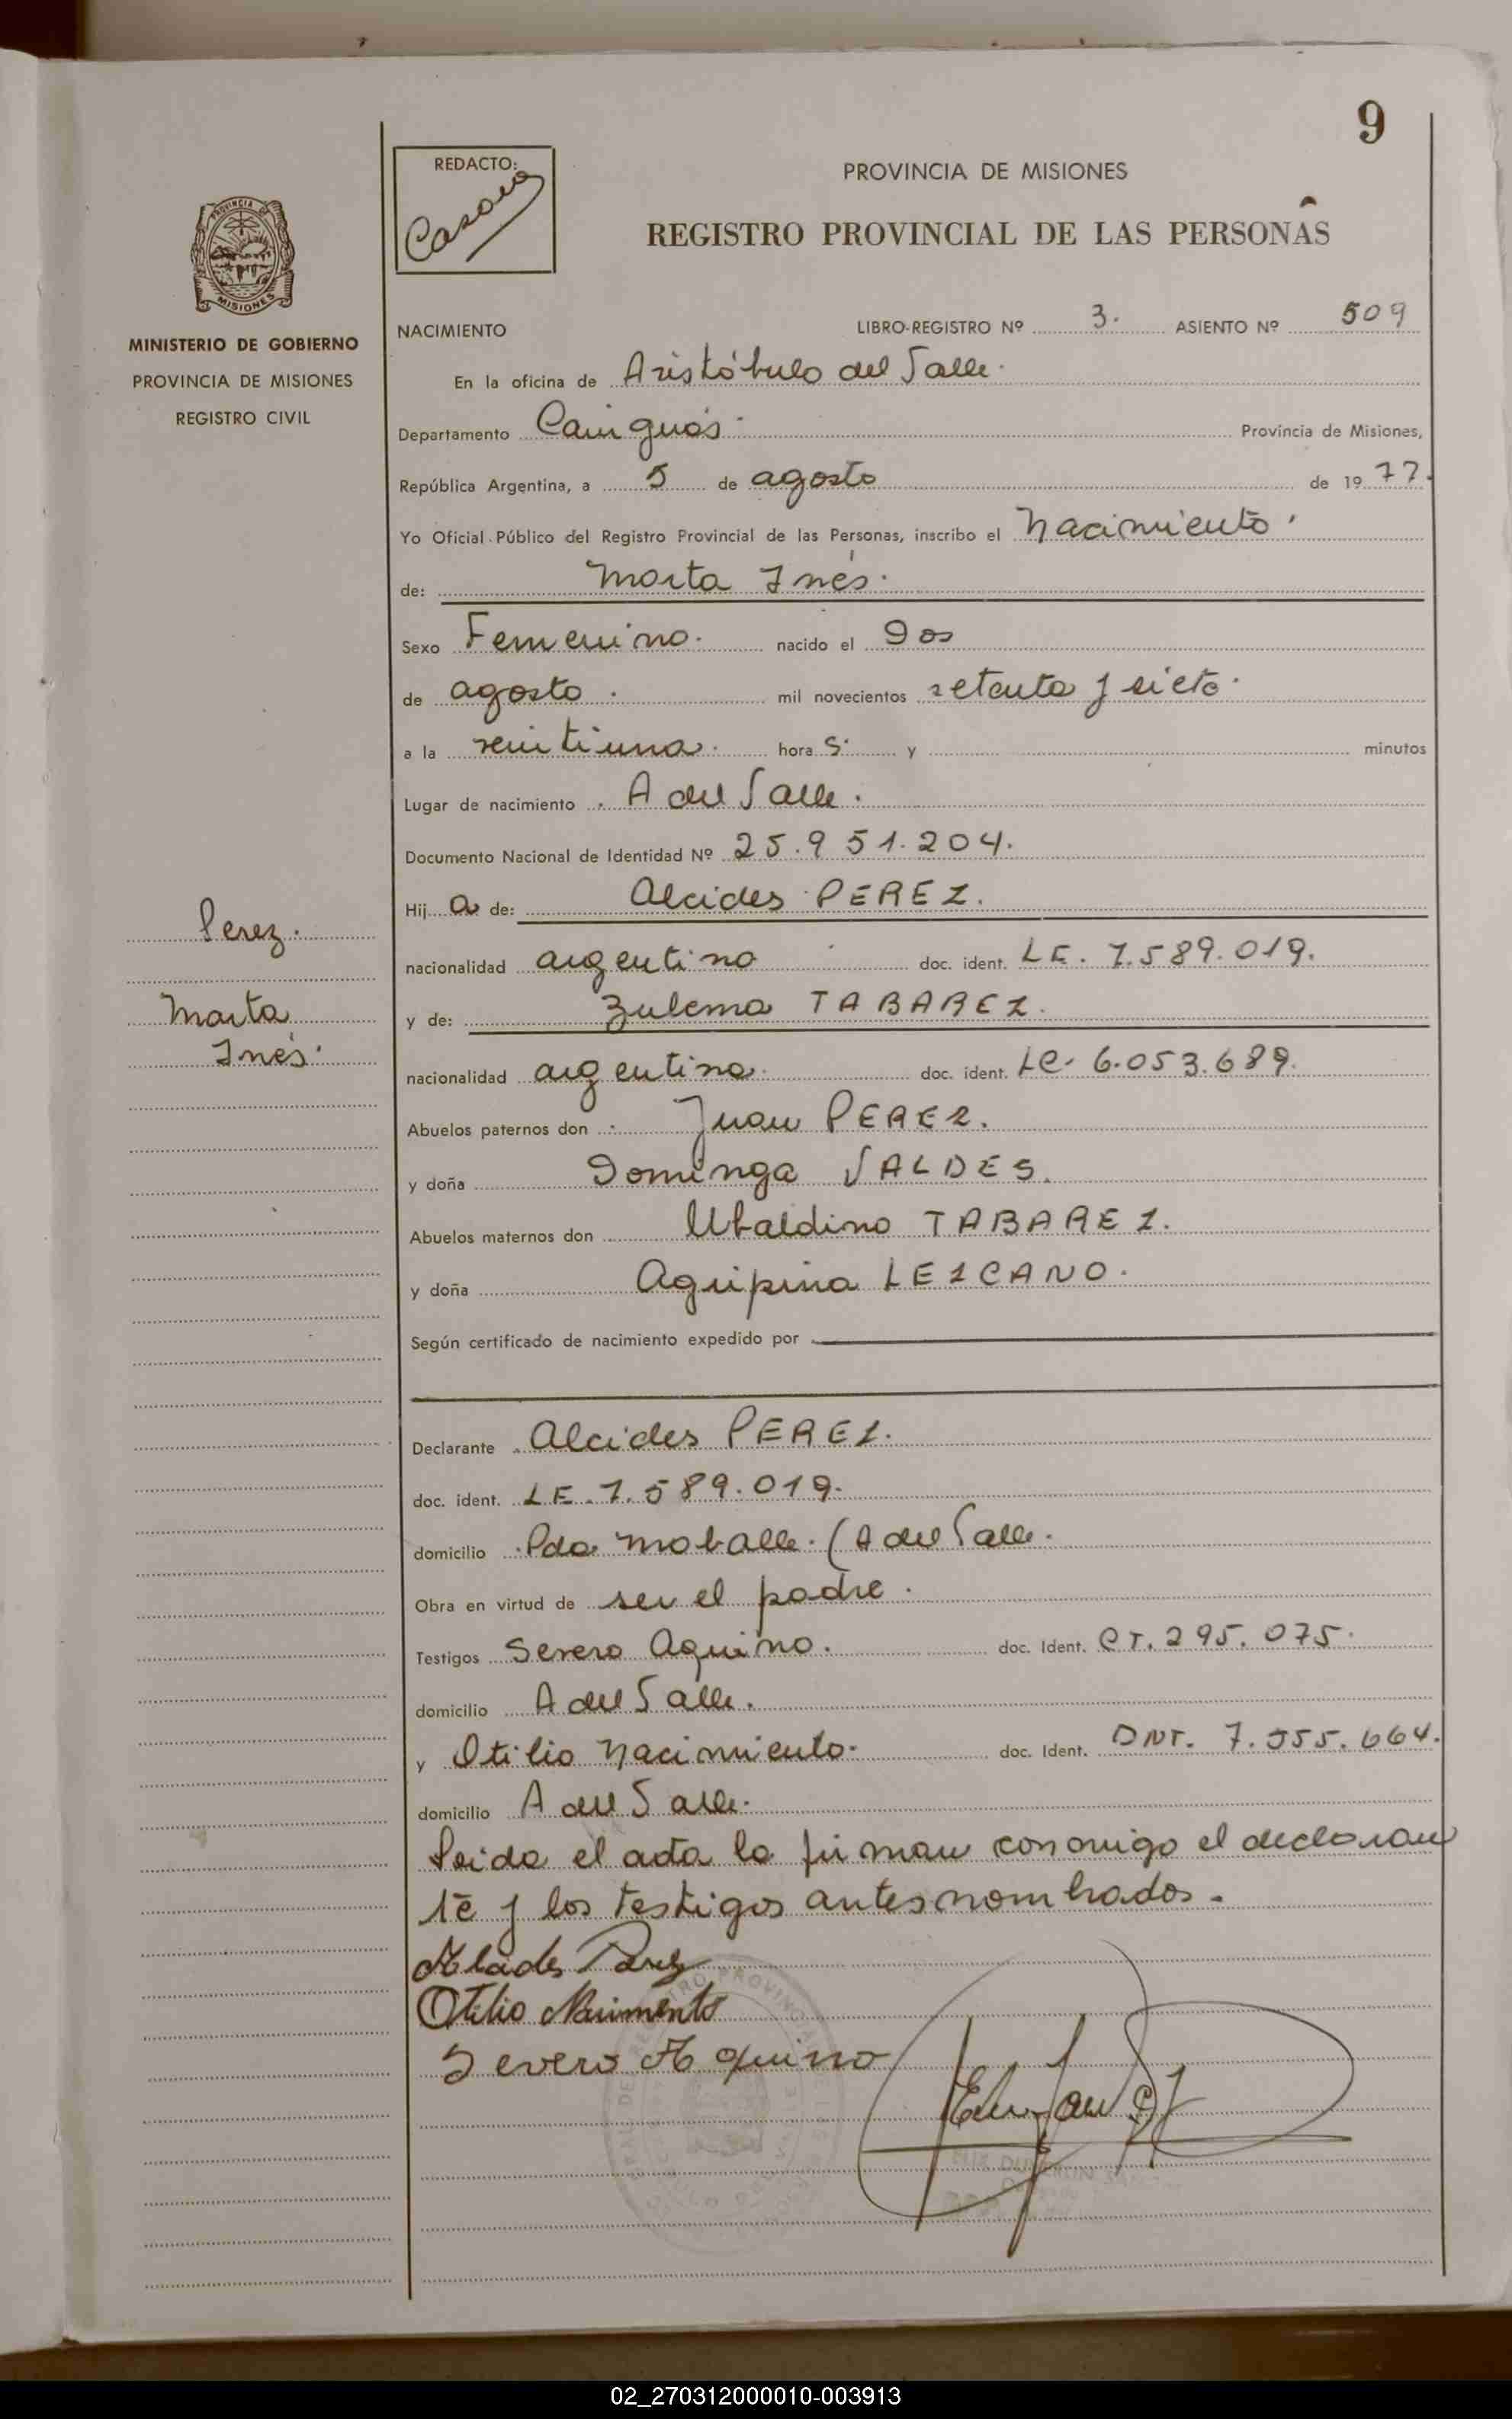 9
REDACTO:
PROVINCIA DE MISIONES
REGISTRO PROVINCIAL DE LAS PERSONAS
PROVINCIA DE
MISIONES
MINISTERIO DE GOBIERNO
PROVINCIA DE MISIONES
REGISTRO CIVIL
NACIMIENTO LIBRO-REGISTRO Nº 3. ASIENTO Nº 509
En la oficina de Aristóbulo del Valle.
Departamento Cainguás. Provincia de Misiones,
República Argentina, a 5 de agosto de 1977.
Yo Oficial Público del Registro Provincial de las Personas, inscribo el Nacimiento.
de: Marta Inés.
Sexo Femenino. nacido el Dos
de agosto. mil novecientos setenta y siete.
a la veintiuna. hora s. y minutos
Lugar de nacimiento A del Valle.
Documento Nacional de Identidad Nº 25.951.204.
Hij a de: Alcides PEREZ.
nacionalidad argentino doc. ident. LE. 7.589.019.
y de: Zulema TABAREZ.
nacionalidad argentina. doc. ident. LC. 6.053.689.
Abuelos paternos don Juan PEREZ.
y doña Dominga VALDES.
Abuelos maternos don Ubaldino TABAREZ.
y doña Agripina LEZCANO.
Según certificado de nacimiento expedido por
Perez.
Marta
Inés.
Declarante Alcides PEREZ.
doc. ident. LE. 7.589.019.
domicilio Pda. (A del Valle.
Obra en virtud de ser el padre.
Testigos Severo Aquino. doc. Ident. 295.075.
domicilio A del Valle.
y Otilio Nacimiento. doc. Ident. 664.
domicilio A del Valle.
Leida el acta la firman conmigo el declaran
te y los testigos antes nombrados.
Alcides Perez
Otilio Nacimento
Severo Aquino
02_270312000010-003913